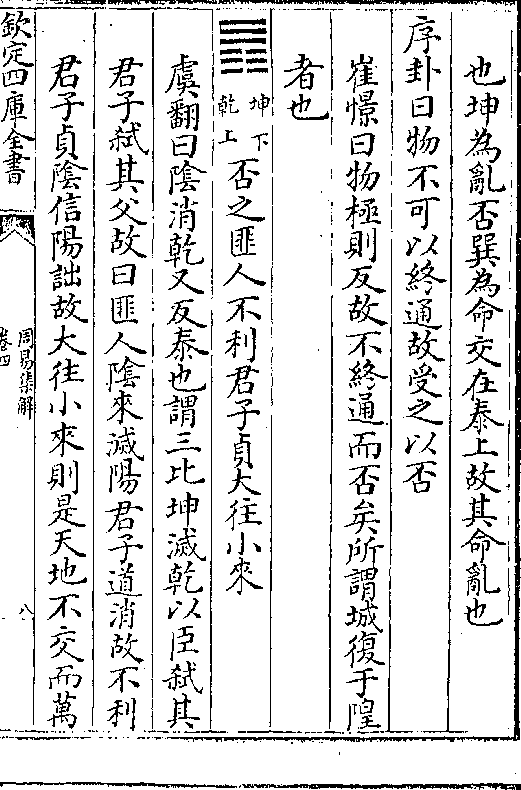 也坤為亂否巽為命交在泰上故其命亂也
序卦曰物不可以終通故受之以否
崔憬曰物極則反故不終通而否矣所謂城復于隍
者也
坤下
乾上
否之匪人不利君子貞大往小來
虞翻曰陰消乾又反泰也謂三比坤滅乾以臣弒其
君子弒其父故曰匪人陰來滅陽君子道消故不利
君子貞陰信陽詘故大往小來則是天地不交而萬
欽定四庫全書
周易集解
卷四
八